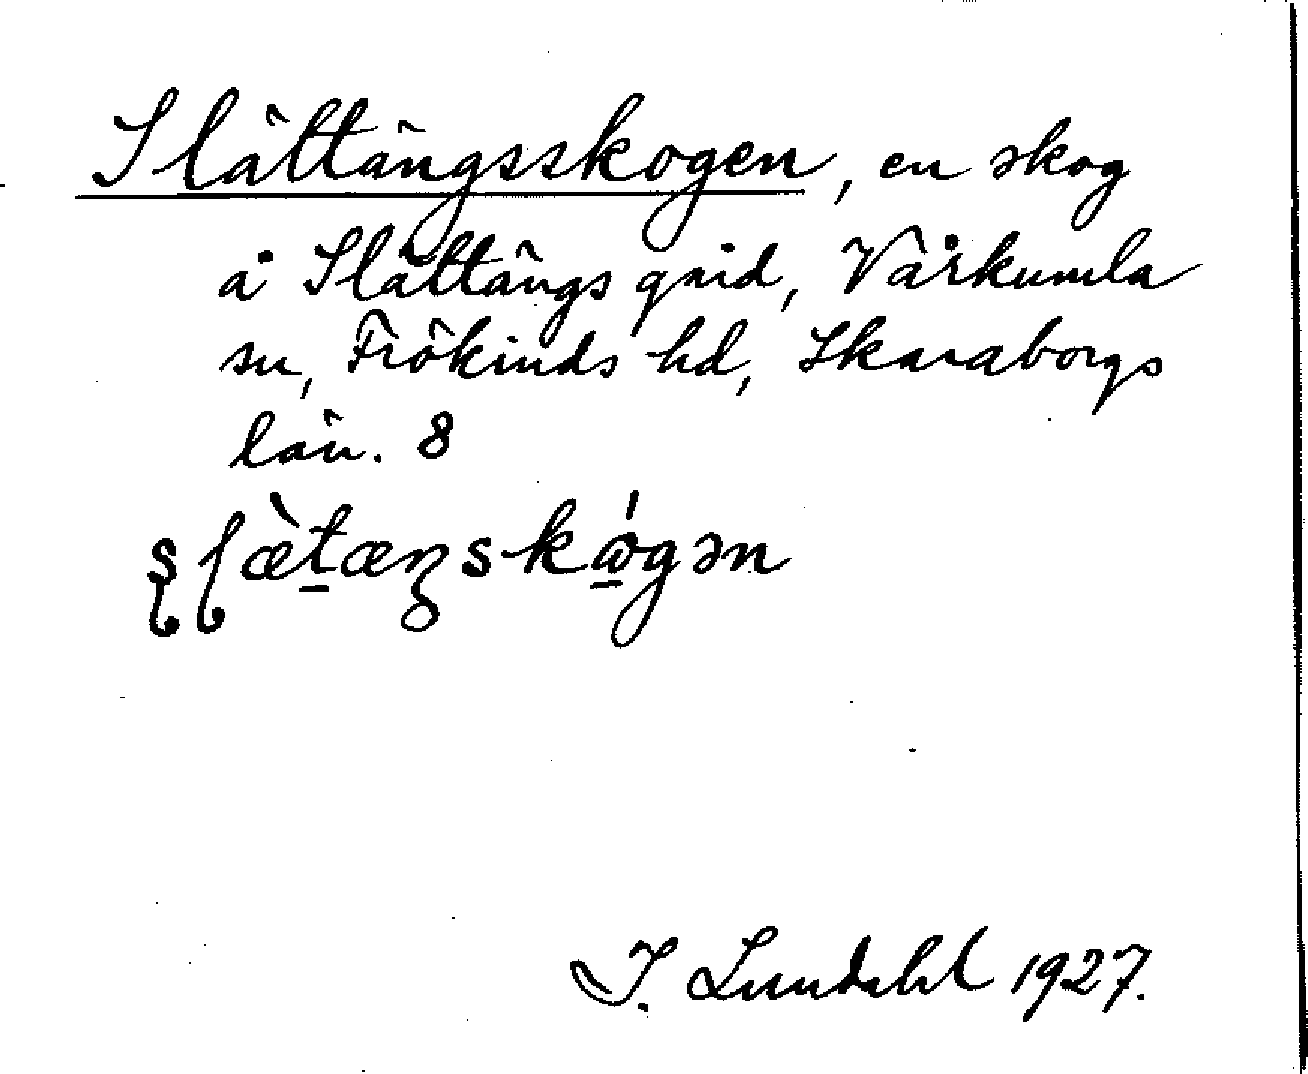 Slättängsskogen, en skog
å Slättängs grd, Vårkumla
sn, Frökinds hd, Skaraborgs
län. 8
I. Lundahl 1927.